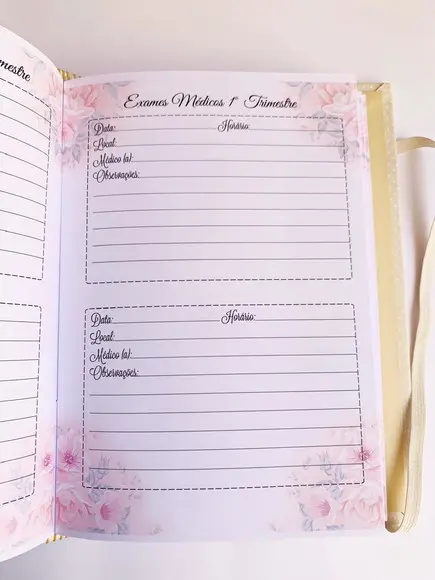 mestre
Exames Médicos 1° Trimestre
Data: Horário:
Local:
Médico (a):
Observações:
Data: Horário:
Local:
Médico (a):
Observações: